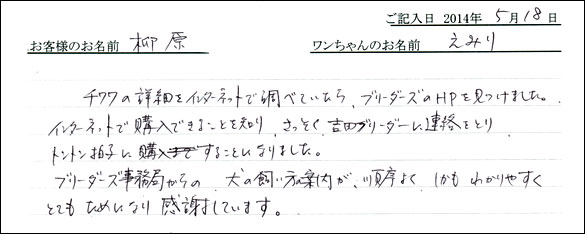 ご記入日 2014年 5月18日
お客様のお名前 柳原 ワンちゃんのお名前 えみり
チワワの詳細をインターネットで調べていたら、ブリーダーズのHPを見つけました。
インターネットで購入できることを知り、さっそく吉田ブリーダーに連絡をとり
トントン拍子に購入することになりました。
ブリーダーズ事務局からの 犬の飼い方の案内が、順序よく しかも わかりやすく
とても ためになり 感謝しています。